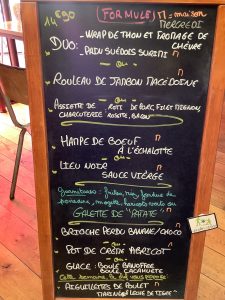 14€90 FORMULE
= maison
MERCREDI
DUO: - WRAP DE THON ET FROMAGE DE CHÈVRE
- PAIN SUÉDOIS SURIMI
ou
ROULEAU DE JAMBON MACÉDOINE
ou
ASSIETTE DE ROTI DE PORC, FILET MIGNON,
CHARCUTERIE ROSETTE, BACON
HAMPE DE BOEUF
A L'ÉCHALOTTE
ou
LIEU NOIR
SAUCE VIERGE
frites, riz, fondue de
GALETTE DE "PATATE"
BRIOCHE PERDU BANANE/CHOCO
ou
POT DE CRÈME ABRICOT
ou
GLACE: BOULE BANOFFEE
BOULE CACAHUETE
AIGUILLETTES DE POULET
MARINÉES LECHE DE TIGRE